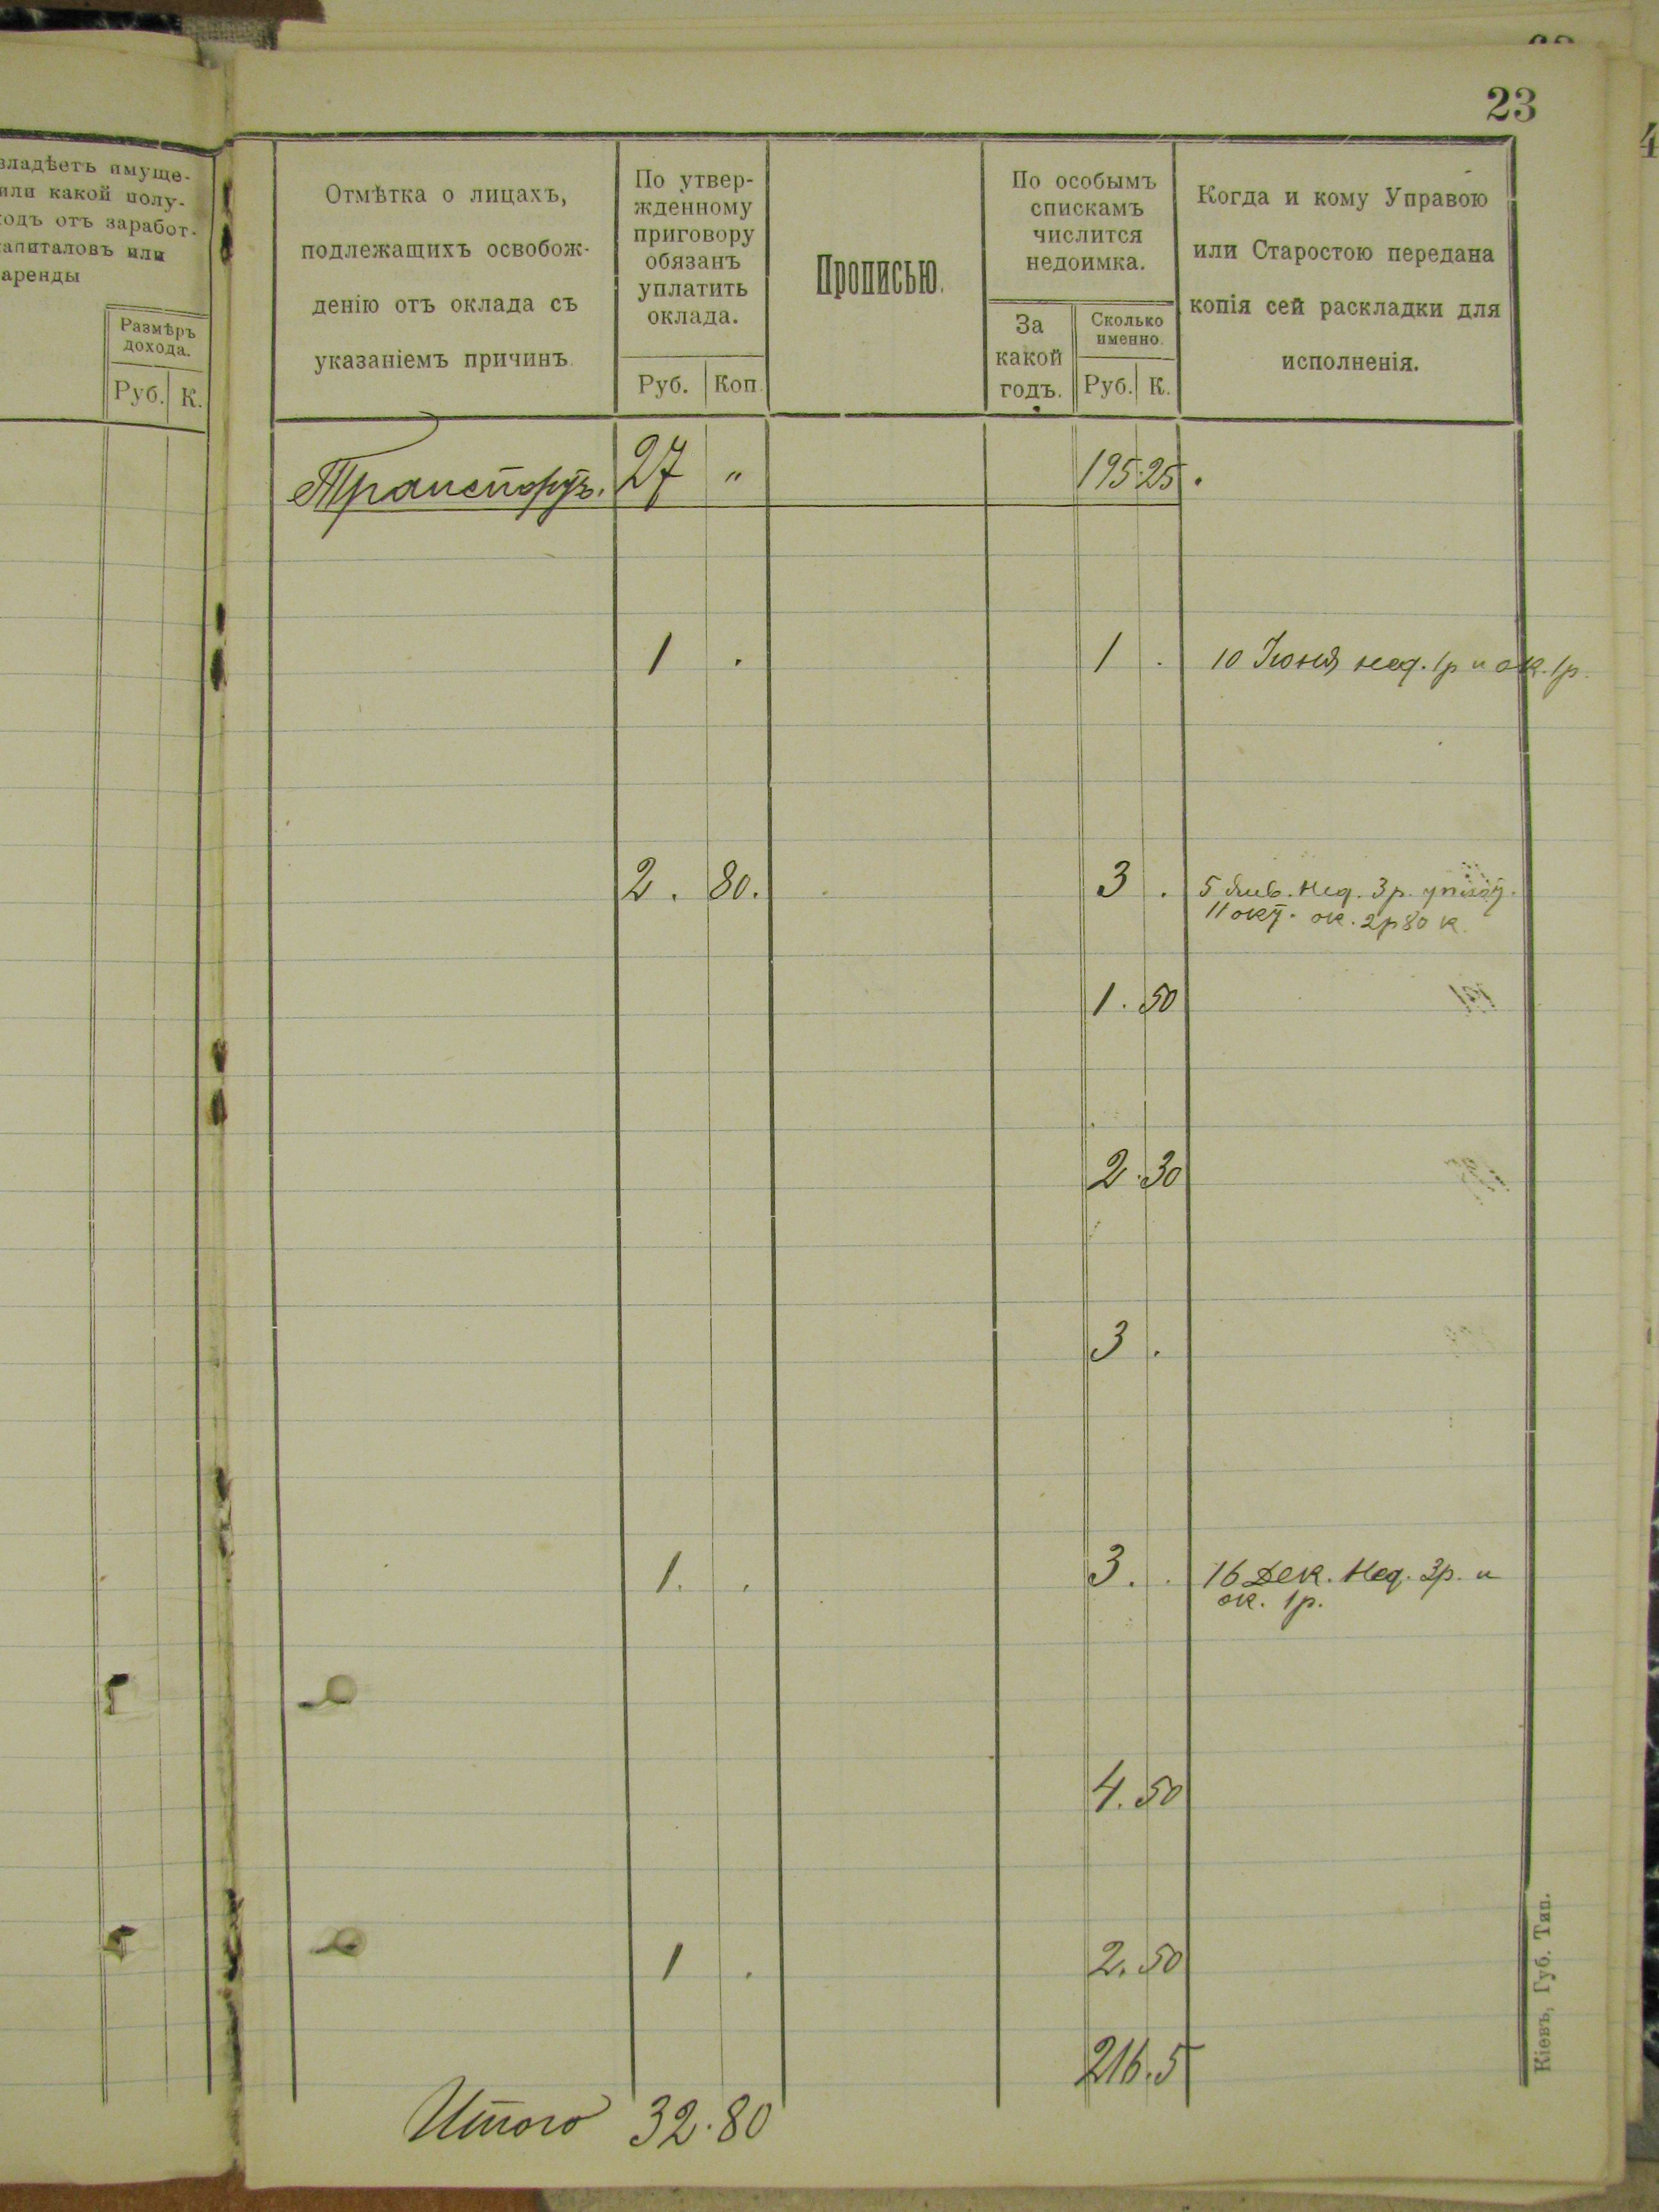 23
владѣетъ имуще-
или какой полу-
ходъ отъ заработ-
капиталовъ или
аренды
Размѣръ
дохода.
Руб. К.
Отмѣтка о лицахъ,
подлежащихъ освобож-
денію отъ оклада съ
указаніемъ причинъ.
По утвер-
жденному
приговору
обязанъ
уплатить
оклада.
Руб. Коп.
Прописью.
По особымъ
спискамъ
числится
недоимка.
За
какой
годъ.
Сколько
именно.
Руб. К.
Когда и кому Управою
или Старостою передана
копія сей раскладки для
исполненія.
Транспортъ. 27 " 195 25.
1 . 1 . 10 Іюня нед. 1р и ок. 1р.
2. 80. 3 . 5 Янв. Нед. 3 р.
11 окт. ок. 2р 80 к.
1. 50
2. 30
3 .
1. . 3. . 16 Дек. Нед. 3р. и
ок. 1р.
4. 50
1 . 2. 50
216. 5
Итого 32. 80
Кіевъ, Губ. Тип.